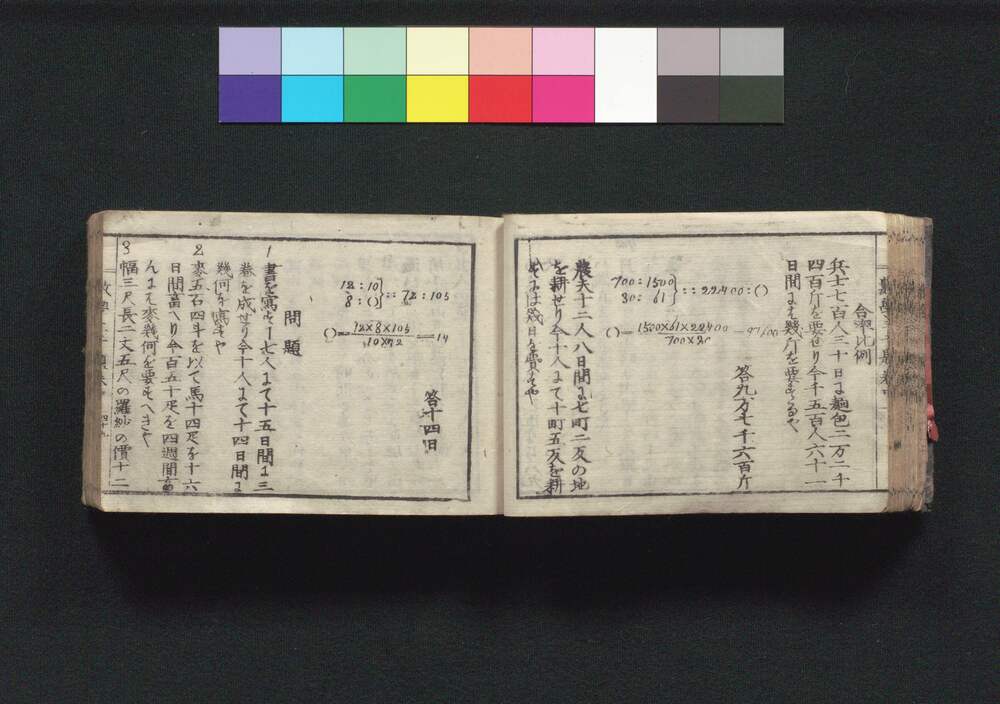 合率比例
兵士七百人三十日に麺包二万二千
四百斤を要せり今千五百人六十一
日間にも幾斤を要するや
700:1500
30: 61
}::22400:()
()=1500×61×22400
700×30
=97600
答九万七千六百斤
農夫十二人八日間に七町二反の地
を耕せり今十人にて十町五反を耕
すには幾日を費すや
12:10
8:()
}::72:105
()=12×8×105
10×72
=14
答十四日
問題
1 書を寫すに七人にて十五日間に三
巻を成せり今十人にて十四日間に
幾何を寫すや
2 麥五石四斗を以て馬十四疋を十六
日間畜へり今百五十疋を四週間畜
んにも麥幾何を要すべきや
3 幅三尺長二丈五尺の羅紗の價十二